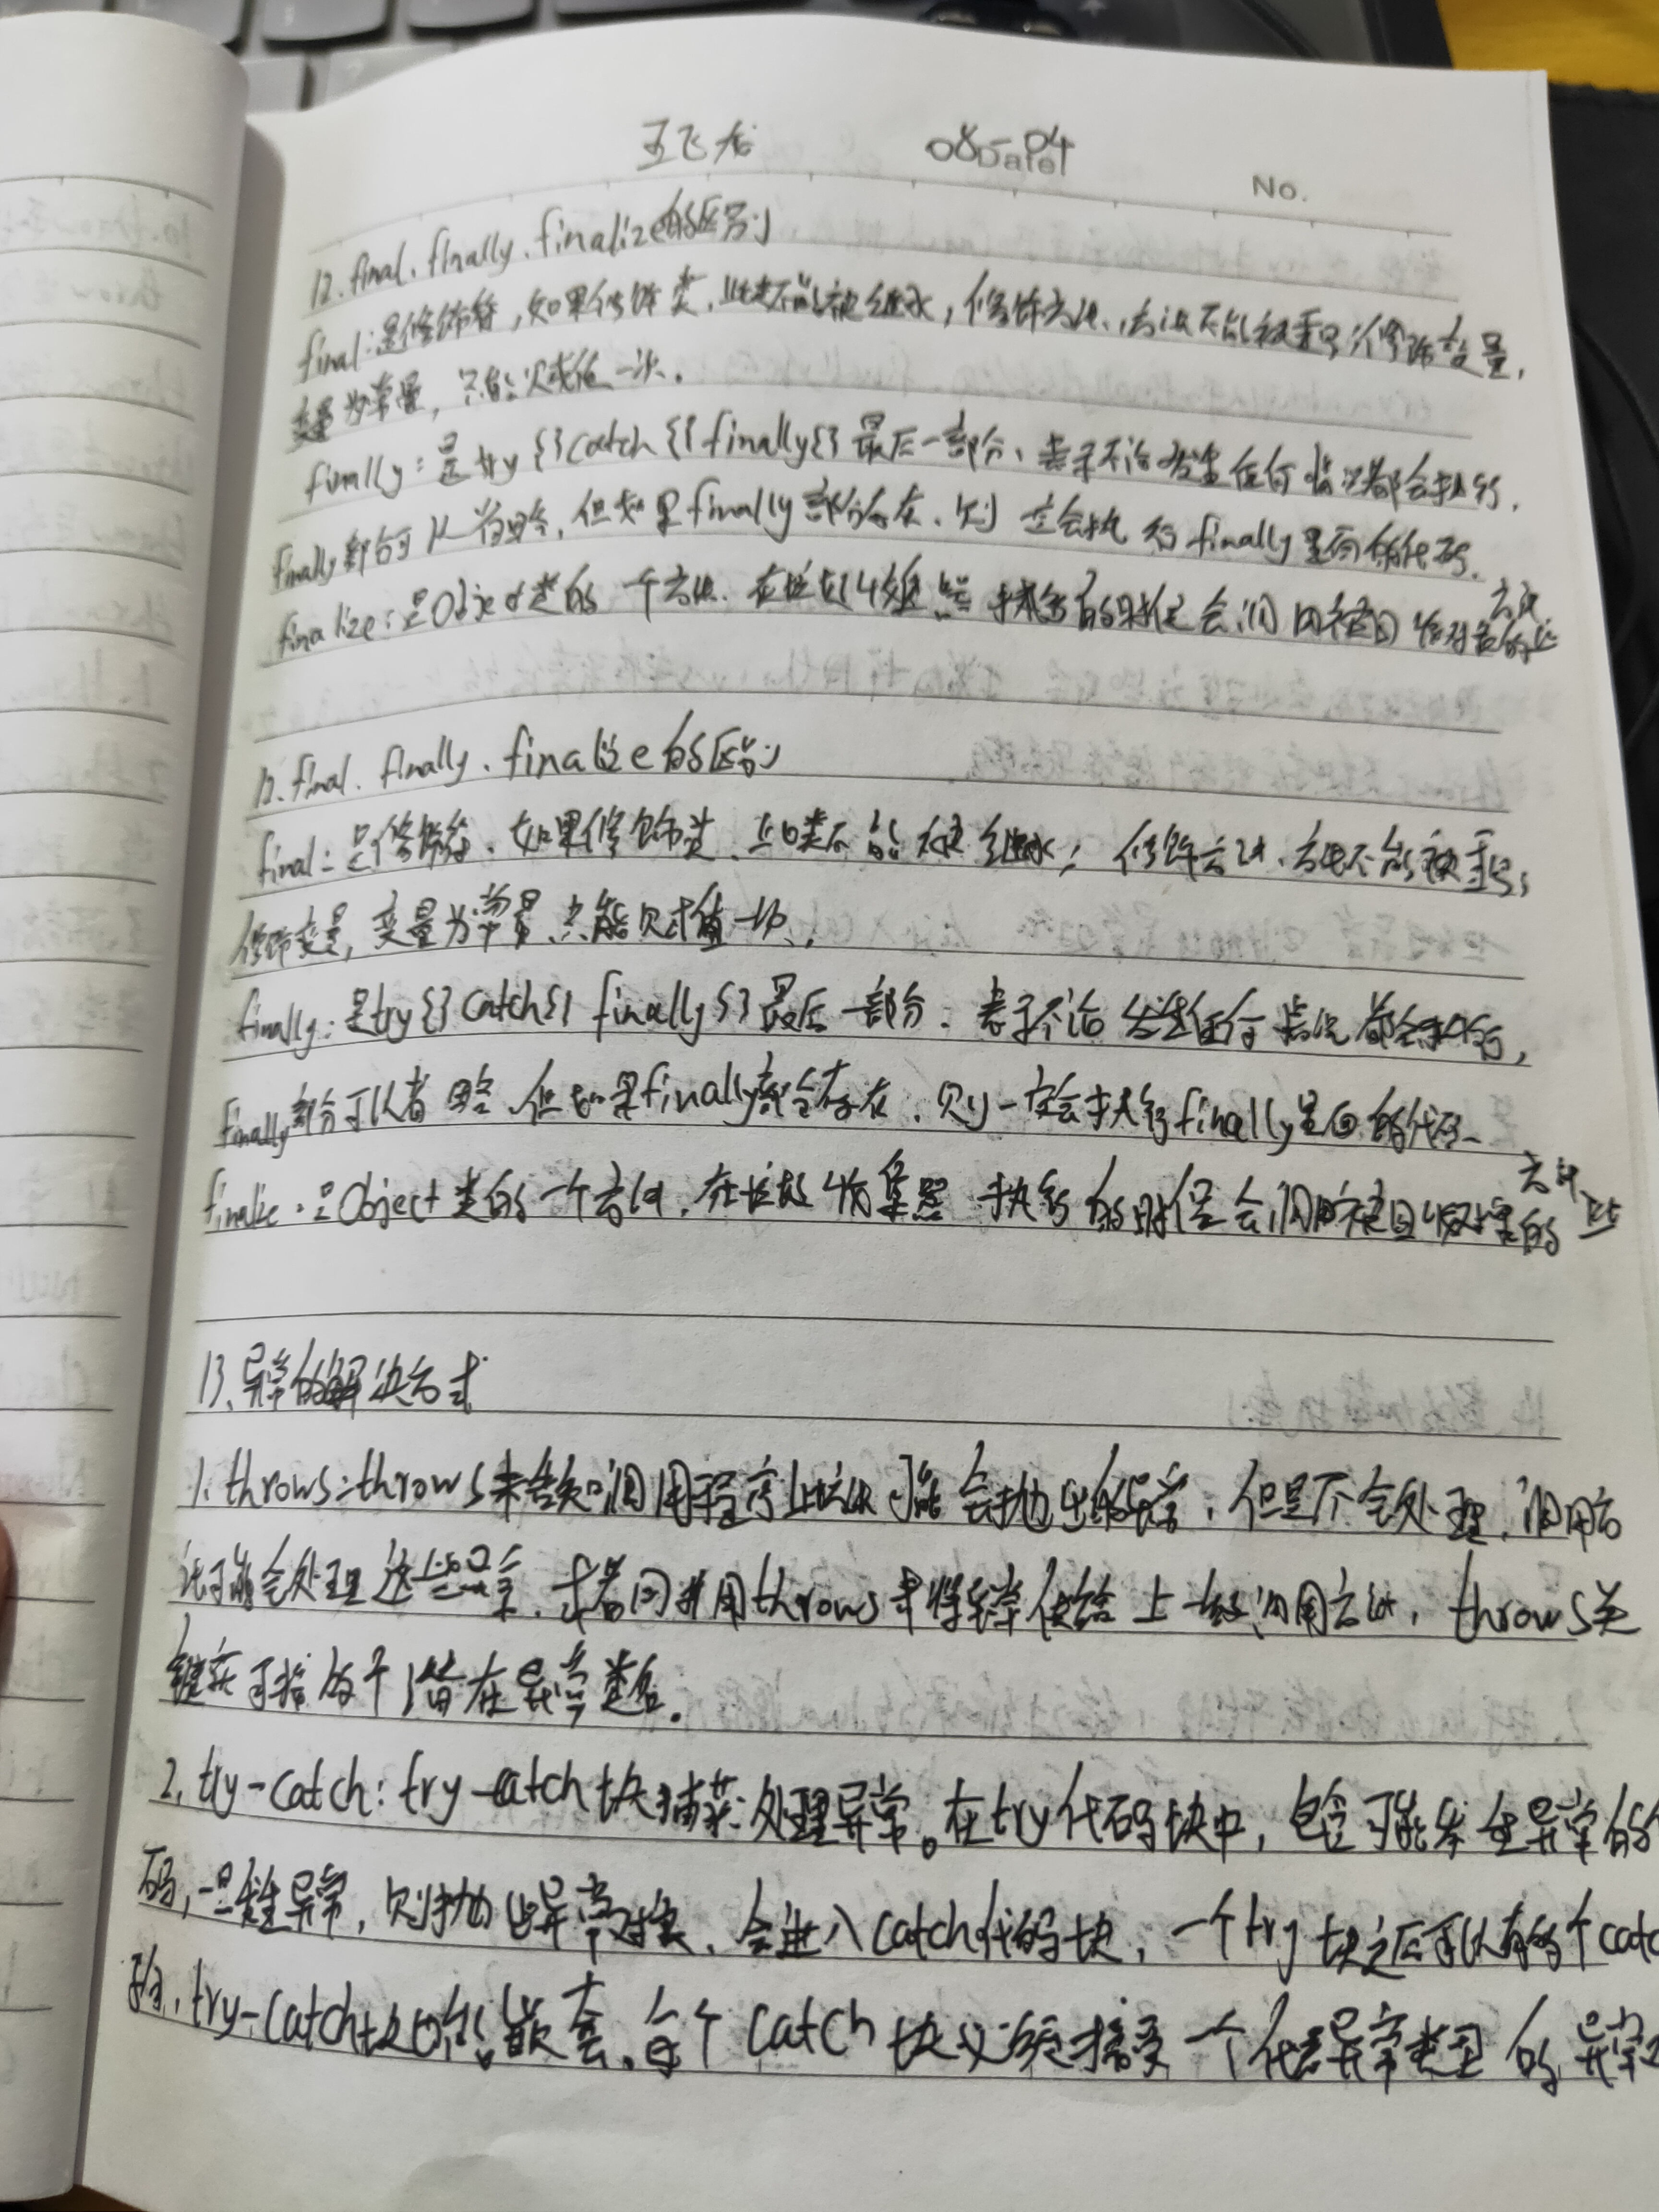 王飞龙 08-04
Date
No.
12. final. finally. finalize的区别
final:是修饰符,如果修饰类.此类不能被继承,修饰方法、方法不能被重写;修饰变量,
变量为常量,只能赋值一次.
finally:是try{}catch{}finally{}最后一部分、表示不论发生任何情况都会执行.
finally部分可以省略,但如果finally部分存在.则一定会执行finally里面的代码.
finalize:是Object类的一个方法.在垃圾收集器执行的时候会调用被回收对象的此
方法
12. final. finally. finalize的区别
final:是修饰符、如果修饰类.此类不能被继承;修饰方法、方法不能被重写;
修饰变量,变量为常量、只能赋值一次.
finally:是try{}catch{}finally{}最后一部分.表示不论发生任何情况都会执行,
finally部分可以省略、但如果finally部分存在.则一定会执行finally里面的代码、
finalize:是Object类的一个方法,在垃圾收集器执行的时候会调用被回收对象的此
方法.
13、异常的解决方式
1. throws:throws来告知调用程序此方法可能会抛出的异常,但是不会处理,调用方
法可能会处理这些异常.或者同样用throws来将异常传给上一级调用方法,throws关
键字可接多个潜在异常类名.
2. try-catch:try-catch块捕获处理异常。在try代码块中,包含可能发生异常的
码,一旦发生异常,则抛出异常对象、会进入catch代码块,一个try块之后可以有多个catc
try-catch块也能嵌套.每个catch块必须接受一个代表异常类型的异常